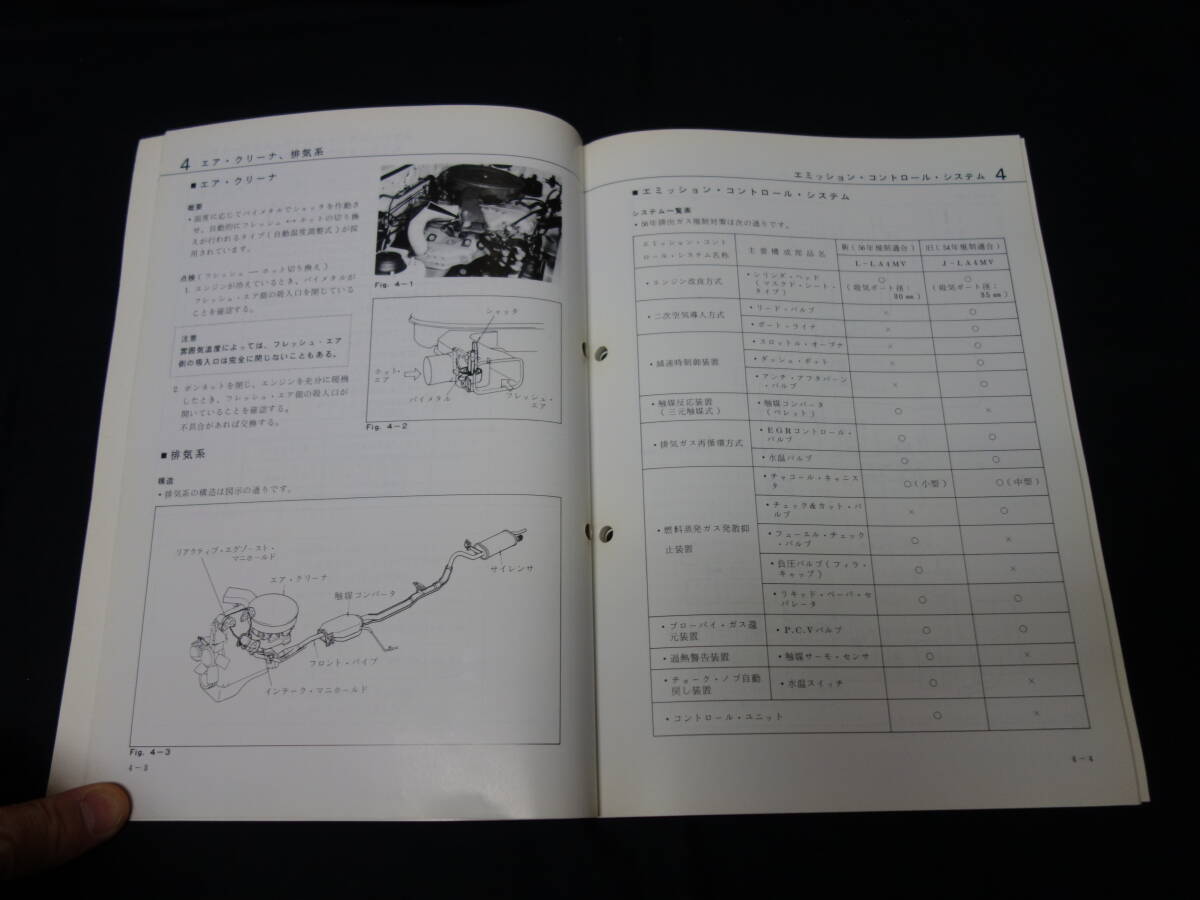 4 エア・クリーナ、排気系
■ エア・クリーナ
概要
・温度に応じてバイメタルでシャッタを作動さ
せ、自動的にフレッシュ↔ホットの切り換
えが行われるタイプ(自動温度調整式)が採
用されています。
点検(フレッシュ―ホット切り換え)
1. エンジンが冷えているとき、バイメタルが
フレッシュ・エア側の吸入口を閉じている
ことを確認する。
注意
雰囲気温度によっては、フレッシュ・エア
側の吸入口は完全に閉じないこともある。
2. ボンネットを閉じ、エンジンを充分に暖機
したとき、フレッシュ・エア側の吸入口が
開いていることを確認する。
不具合があれば交換する。
Fig. 4-1
シャッタ
ホット・
エア
バイメタル
フレッシュ・
エア
Fig. 4-2
■ 排気系
構造
・排気系の構造は図示の通りです。
リアクティブ・エグゾースト・
マニホールド
エア・クリーナ
触媒コンバータ
サイレンサ
フロント・パイプ
インテーク・マニホールド
Fig. 4-3
4-3
エミッション・コントロール・システム 4
■ エミッション・コントロール・システム
システム一覧表
・56年排出ガス規制対策は次の通りです。
エミッション・コント
ロール・システム名称
主要構成部品名
新(56年規制適合)
旧(54年規制適合)
L-LA4MV
J-LA4MV
・エンジン改良方式
・シリンダ・ヘッド
(マスクド・シート・
タイプ)
○
(吸気ポート径:
30㎜)
○
(吸気ポート径:
35㎜)
・二次空気導入方式
・リード・バルブ × ○
・ポート・ライナ × ○
・減速時制御装置
・スロットル・オープナ × ○
・ダッシュ・ポット × ○
・アンチ・アフタバーン
・バルブ × ○
・触媒反応装置
(三元触媒式)
・触媒コンバータ
(ペレット) ○ ×
・排気ガス再循環方式
・EGRコントロール・
バルブ ○ ○
・水温バルブ ○ ○
・燃料蒸発ガス発散抑
止装置
・チャコール・キャニス
タ ○(小型) ○(中型)
・チェック&カット・バ
ルブ × ○
・フューエル・チェック
・バルブ ○ ×
・負圧バルブ(フィラ・
キャップ) ○ ×
・リキッド・ベーパ・セ
パレータ ○ ○
・ブローバイ・ガス還
元装置
・P.C.Vバルブ ○ ○
・過熱警告装置 ・触媒サーモ・センサ ○ ×
・チョーク・ノブ自動
戻し装置
・水温スイッチ ○ ×
・コントロール・ユニット ○ ×
4-4